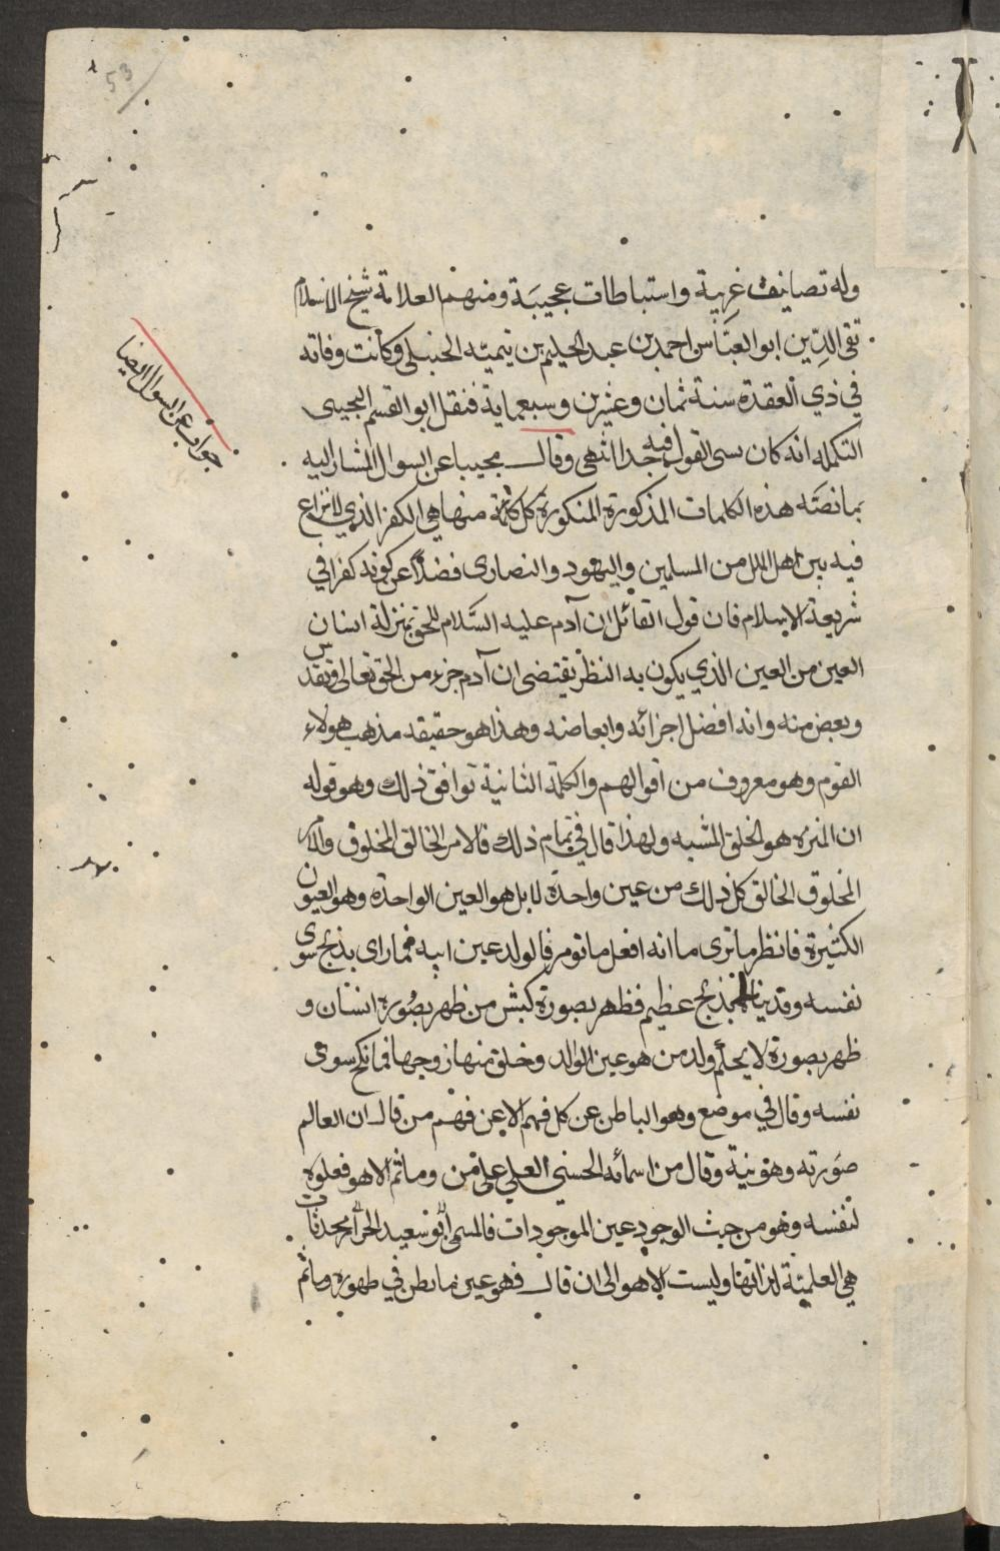 53
وله تصانيف غريبة واستباطات عجيبة ومنهم العلامة شيخ الاسلام
تقي الدين ابو العباس احمد بن عبد الحليم بن تيميه الحنبلي وكانت وفاته
في ذي القعدة سنة ثمان وعشرين وسبعماية فنقل ابو القسم
التكمله انه كان سي القول فيه جدا انتهى وقال مجيبا عن السوال المشار اليه
بما نصه هذه الكلمات المذكورة المنكورة كل كلمة منها هي الكفر الذي لا نزاع
فيه بين اهل الملل من المسلمين واليهود والنصارى فضلا عن كونه كفرا في
شريعة الاسلام فان قول القائل ان آدم عليه السلام للحق بمنزلة انسان
العين من العين الذي يكون به النظر يقتضى ان آدم جزء من الحق تعالى وتقدس
وبعض منه وانه افضل اجزائه وابعاضه وهذا هو حقيقه مذهب هولاء
القوم وهو معروف من اقوالهم والكلمة الثانية توافق ذلك وهو قوله
ان المنزه هو الخلق المشبه ولهذا قال في تمام ذلك فالامر الخالق المخلوق والامر
المخلوق الخالق كل ذلك من عين واحدة لا بل هو العين الواحدة وهو العيون
الكثيرة فانظر ما ترى ما انه افعل ما تومر فالولد عين ابيه فما راى يذبح سوى
نفسه وفديناه بذبح عظيم فظهر بصورة كبش من ظهر بصورة انسان و
ظهر بصورة لا بحكم ولد من هو عين الوالد وخلق منها زوجها فما نكح سوى
نفسه وقال في موضع وهو الباطن عن كل فهم الا عن فهم من قال ان العالم
صورته وهويته وقال من اسمائه الحسنى العلي على من وما ثم الا هو فعلوه
لنفسه وهو من حيث الوجود عين الموجودات فالمسمى ابو سعيد الخراز محدثات
هي العلية لذاتها وليست الا هو الى ان قال فهو عين ما بطن في ظهوره وما ثم
جواب عن السوال ايضا